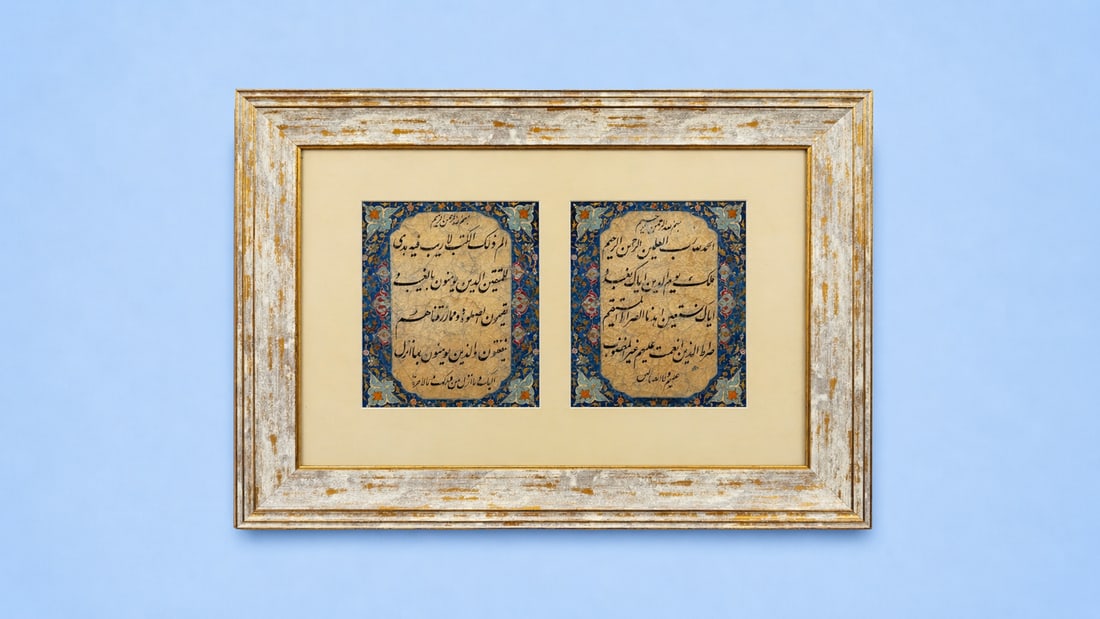 بسم الله الرحمن الرحيم
الحمد لله رب العلمين الرحمن الرحيم
ملك يوم الدين اياك نعبد و
اياك نستعين اهدنا الصراط المستقيم
صراط الذين انعمت عليهم غير المغضوب
عليهم ولا الضالين
بسم الله الرحمن الرحيم
الم ذلك الكتب لا ريب فيه هدى
للمتقين الذين يؤمنون بالغيب و
يقيمون الصلوة ومما رزقناهم
ينفقون والذين يؤمنون بما انزل
اليك وما انزل من قبلك وبالاخرة